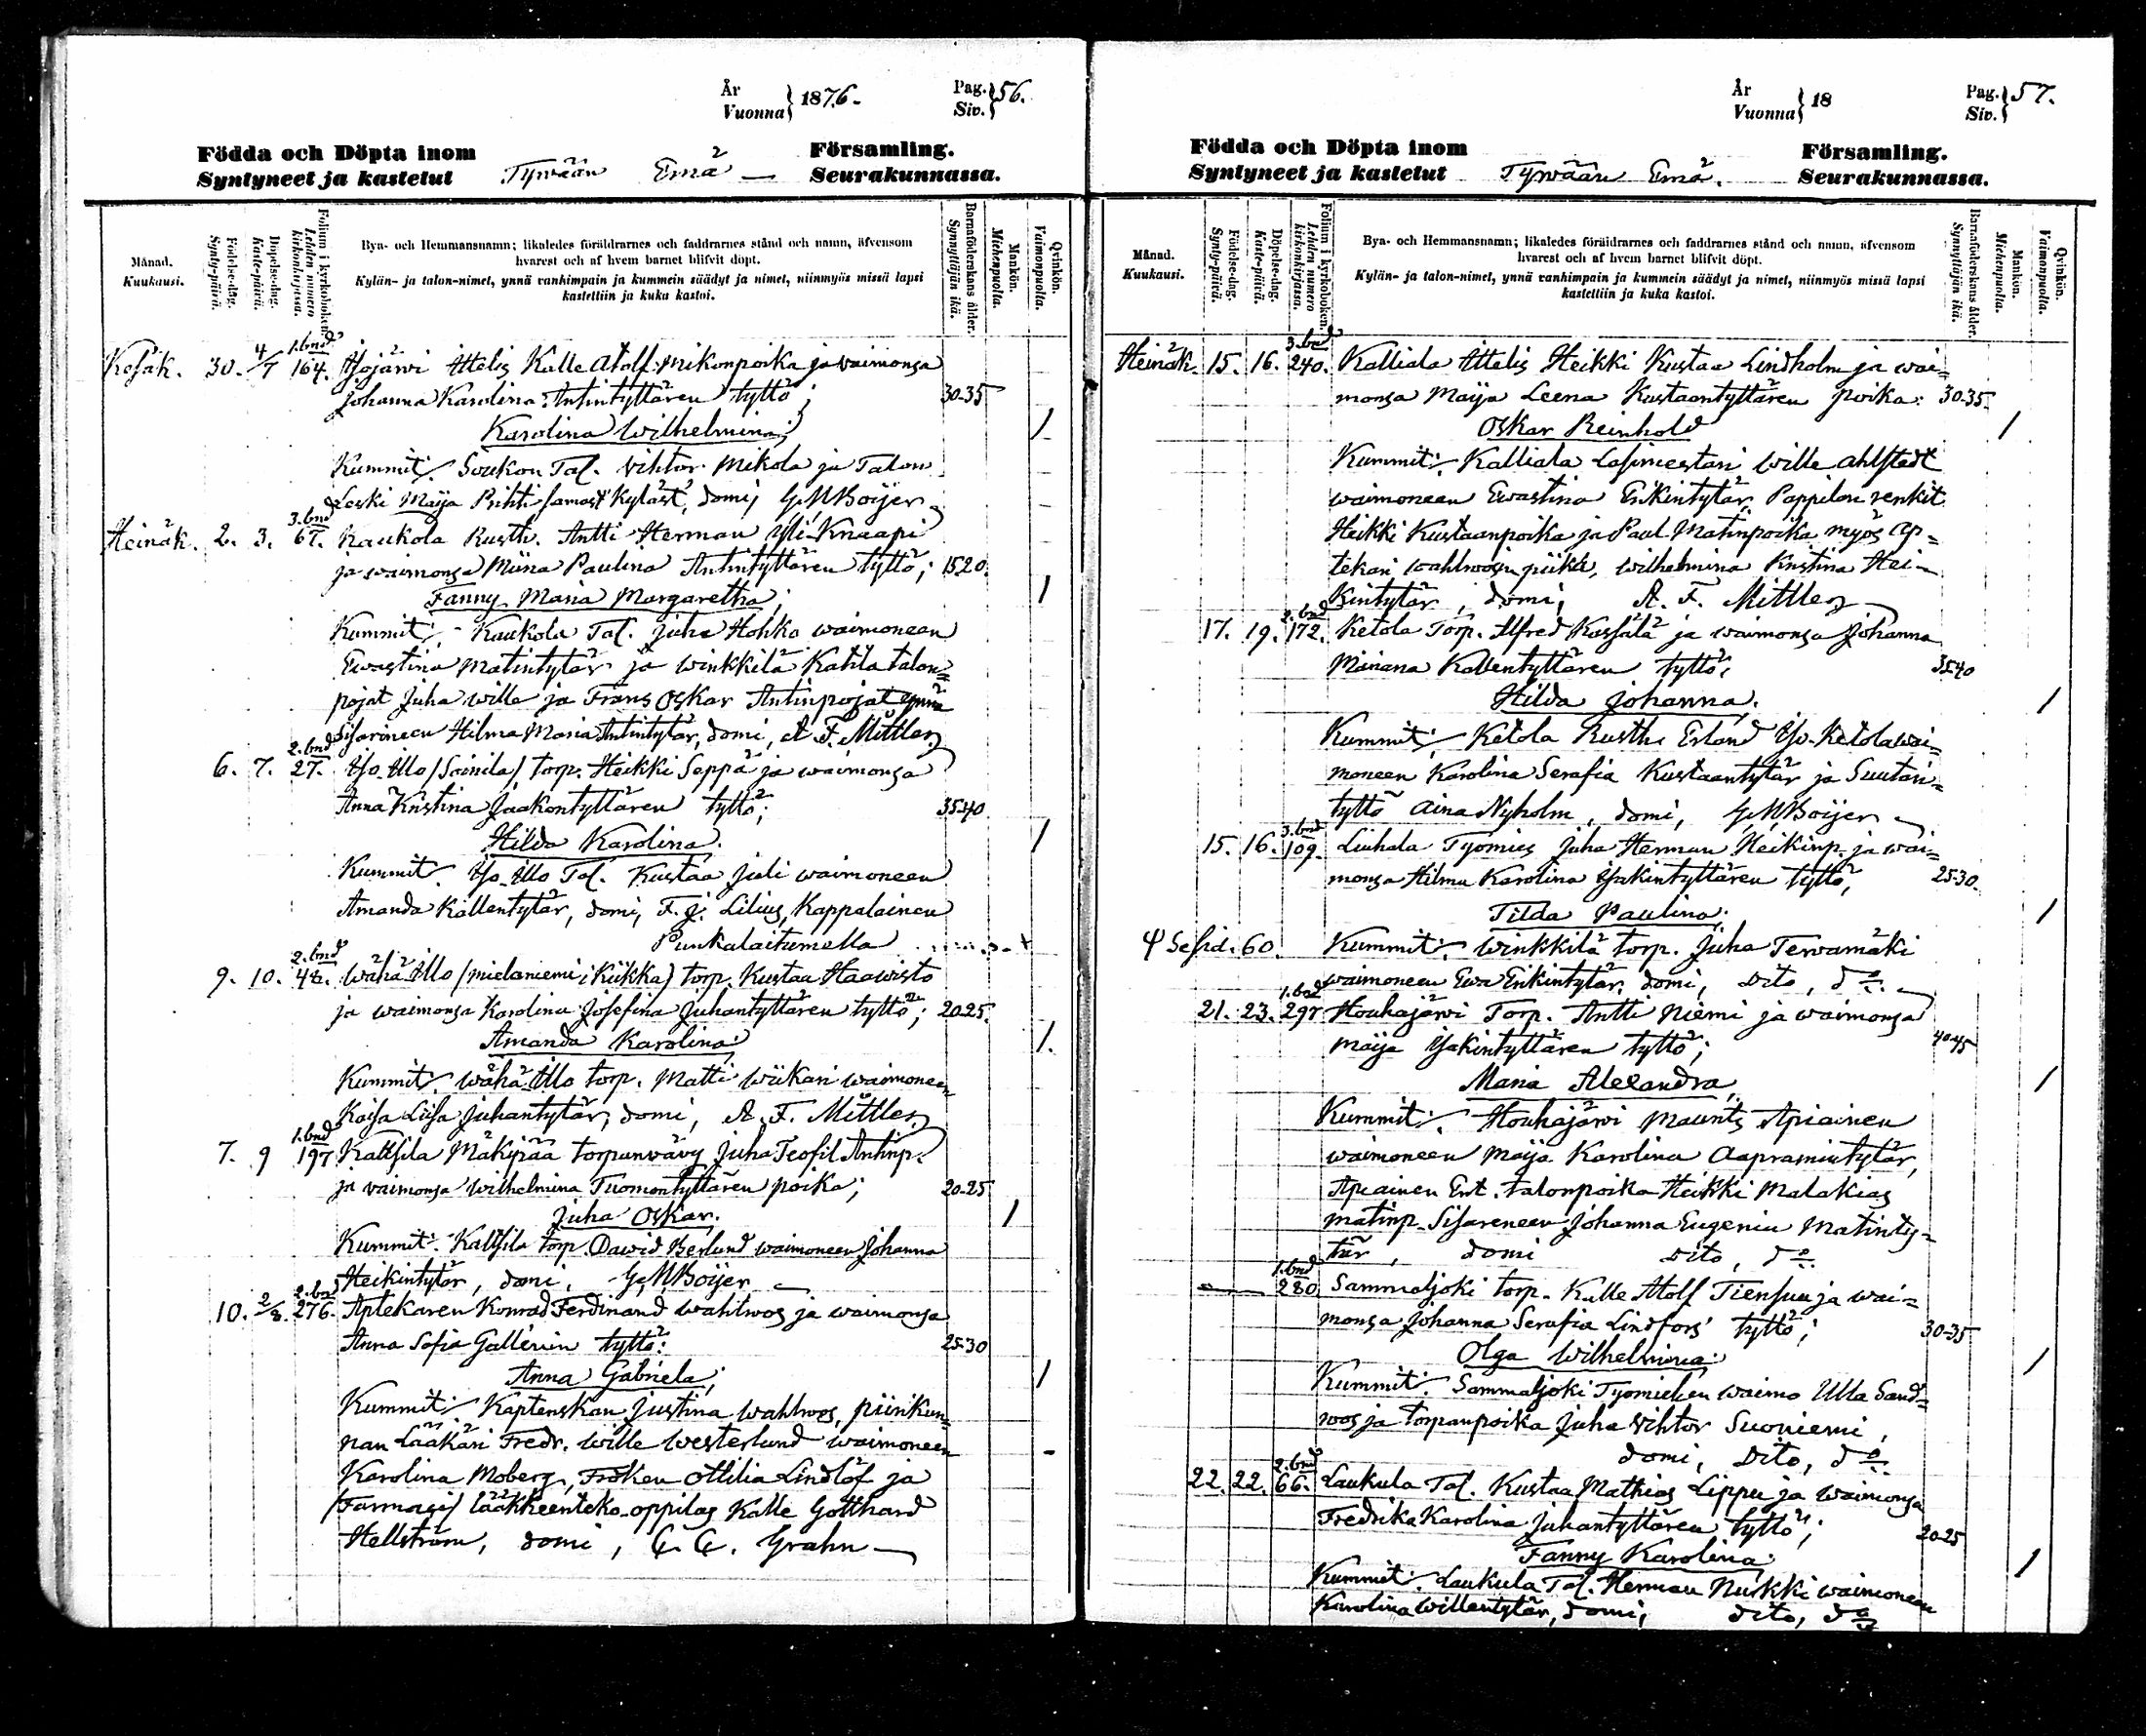 År
Vuonna } 1876.
Pag.
Siv. } 56.
Födda och Döpta inom
Syntyneet ja kastetut
Tyrvään Emä
Församling.
Seurakunnassa.
Månad.
Kuukausi.
Födelse-dag.
Synty-päivä.
Döpelse-dag.
Kaste-päivä.
Folium i kyrkoboken.
Lehden numero kirkonkirjassa.
Bya- och Hemmansnamn; likaledes föräldrarnes och faddrarnes stånd och namn, äfvensom
hvarest och af hvem barnet blifvit döpt.
Kylän- ja talon-nimet, ynnä vanhimpain ja kummein säädyt ja nimet, niinmyös missä lapsi
kastettiin ja kuka kastoi.
Barnaföderskans ålder.
Synnyttäjän ikä.
Mankön.
Miehenpuolta.
Qvinkön.
Vaimonpuolta.
Kesäk. 30. 4/7 1. bnd 164. Isojärvi Ittelis Kalle Atolf Mikonpoika ja vaimonsa
Johanna Karolina Antintyttären tyttö; 30-35
Karolina Wilhelmina; 1
Kummit: Soukon Tal. Vihtor Mikola ja Talon
Leski Maija Prihti samast kyläst, domi, G. M. Boijer
Heinäk. 2. 3. 3. bnd 67. Kaukola Rusth. Antti Herman Yli-Knaapi
ja waimonsa Miina Paulina Antintyttären tyttö; 15-20.
Fanny Maria Margaretha; 1
Kummit: Kaukola Tal. Juha Hohko waimoneen
Ewastina Matintytär ja Winkkilä Katila talon=
pojat Juha Wille ja Frans Oskar Antinpojat ynnä
Sisarineen Hilma Maria Antintytär, domi, A. F. Mittler
6. 7. 2. bnd 27. Iso Illo /Soinila/ torp. Heikki Seppä ja waimonsa
Anna Kristina Jaakontyttären tyttö; 35-40
Hilda Karolina. 1
Kummit: Iso-Illo Tal. Kustaa Juli waimoneen
Amanda Kallentytär, domi, F. J. Lilius, Kappalainen
Punkalaitumella
9. 10. 2. bnd 48. Wähä Illo /mielaniemi i Kiikka/ torp. Kustaa Haawisto
ja waimonsa Karolina Josefina Juhantyttären tyttö; 20-25.
Amanda Karolina; 1.
Kummit: Wähä-Illo torp. Matti Wiikari waimoneen
Kaisa Liisa Juhantytär, domi, A. F. Mittler
7. 9 1. bnd 197 Kaltsila Mäkipää torpanvävy Juha Teofil Antinp.
ja vaimonsa Wilhelmina Tuomontyttären poika; 20-25
Juha Oskar. 1
Kummit: Kaltsila torp. Dawid Berlund waimoneen Johanna
Heikintytär, domi, G. M. Boijer
10. 2/8. 2. bnd 276. Aptekaren Konrad Ferdinand Wahlroos ja waimonsa
Anna Sofia Gallenin tyttö: 25-30
Anna Gabriela; 1
Kummit: Kaptenskan Justina Wahlroos, piirikun=
nan Lääkäri Fredr. Wille Westerlund waimoneen
Karolina Moberg, Fröken Ottilia Lindlöf ja
/Farmasi/ lääkkeenteko-oppilas Kalle Gotthard
Hellström, domi, C. C. Grahn
År
Vuonna } 18
Pag.
Siv. } 57.
Födda och Döpta inom
Syntyneet ja kastetut
Tyrvään Emä.
Församling.
Seurakunnassa.
Månad.
Kuukausi.
Födelse-dag.
Synty-päivä.
Döpelse-dag.
Kaste-päivä.
Folium i kyrkoboken.
Lehden numero kirkonkirjassa.
Bya- och Hemmansnamn; likaledes föräldrarnes och faddrarnes stånd och namn, äfvensom
hvarest och af hvem barnet blifvit döpt.
Kylän- ja talon-nimet, ynnä vanhimpain ja kummein säädyt ja nimet, niinmyös missä lapsi
kastettiin ja kuka kastoi.
Barnaföderskans ålder.
Synnyttäjän ikä.
Mankön.
Miehenpuolta.
Qvinkön.
Vaimonpuolta.
Heinäk. 15. 16. 3. bnd 240. Kalliala Ittelis Heikki Kustaa Lindholm ja wai=
monsa Maija Leena Kustaantyttären poika: 30-35.
Oskar Reinhold 1
Kummit: Kalliala Lasimestari Wille Ahlstedt
waimoneen Ewastina Erikintytär, Pappilan renkit
Heikki Kustaanpoika ja Paul Matinpoika myös Ap=
tekari Wahlroosin piika, Wilhelmina Kristina Hei=
kintytär, domi, A. F. Mittler
17. 19. 2. bnd 172. Ketola Torp. Alfred Kassälä ja waimonsa Johanna
Mariana Kallentyttären tyttö; 35-40
Hilda Johanna. 1
Kummit: Ketola Rusth. Erland Iso-Ketola wai=
moneen Karolina Serafia Kustaantytär ja Suutari=
tyttö Aina Nyholm, domi, G. M. Boijer
15. 16. 3. bnd 109. Liuhala Työmies Juha Herman Heikinp. ja wai=
monsa Hilma Karolina Isakintyttären tyttö, 25-30.
Tilda Paulina; 1
60. Kummit: Winkkilä torp. Juha Terwamäki
waimoneen Ewa Erikintytär, domi, Dito, d:o
21. 23. 1. bnd 297 Houhajärvi Torp. Antti Niemi ja waimonsa
Maija Isakintyttären tyttö; 40-45
Maria Alexandra, 1
Kummit: Houhajärvi Maurits Apiainen
waimoneen Maija Karolina Aapramintytär,
Apiainen Ent. talonpoika Heikki Malakias
Matinp. Sisareneen Johanna Eugenia Matinty=
tär, domi Dito, d:o
1. bnd 280. Sammaljoki torp. Kalle Atolf Tiensuu ja wai=
monsa Johanna Serafia Lindfors' tyttö; 30-35
Olga Wilhelmina; 1
Kummit: Sammaljoki Työmiehen waimo Ulla Sand=
roos ja torpanpoika Juha Vihtor Suoniemi,
domi, Dito, d:o
22. 22. 2. bnd 66. Laukula Tal. Kustaa Mathias Lippu ja waimonsa
Fredrika Karolina Juhantyttären tyttö; 20-25
Fanny Karolina; 1
Kummit: Laukula Tal. Herman Nuskki waimoneen
Karolina Willentytär, domi, Dito, d:o